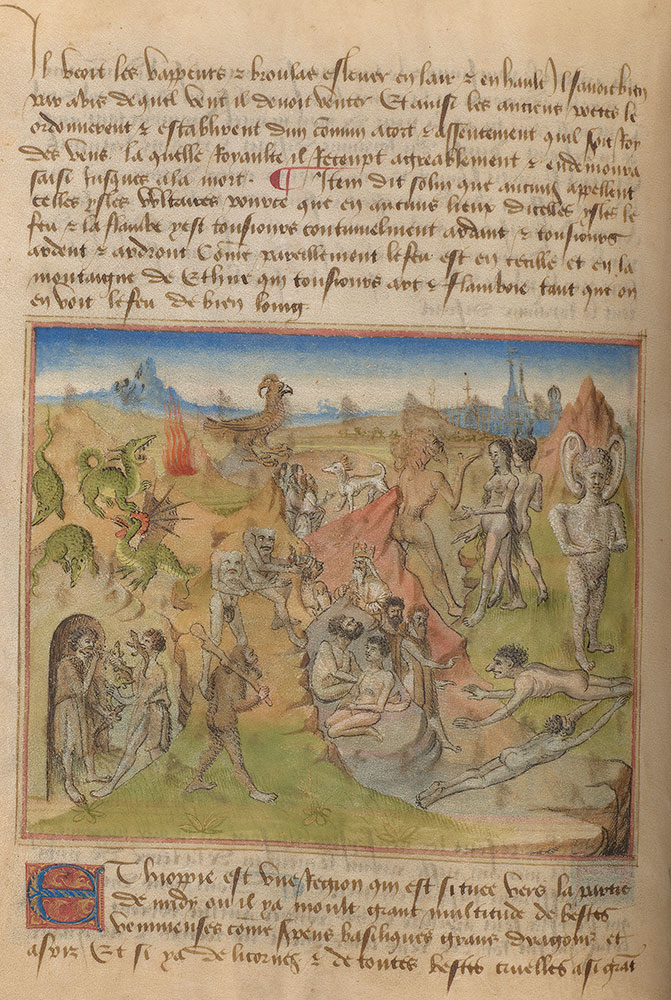 Il veoit les vappeurs & broulas eslever en lair & en hault Il savoit bien
par advis de quel vent il devoit venter Et ainsi les anciens poetes le
ordonnerent & establirent dun comun acort & assentement quil soit Roy
des vens. la quelle Royaulte il Receupt agreablement & en demoura
saisi Jusques ala mort. ¶ Item dit solin que aucuns appellent
celles ysles Voltaires pource que en aucuns lieux dicelles ysles le
feu & la flambe y est tousiours continuelment ardant & tousiours
ardent & ardront Come pareillement le feu est en cecille et en la
montaigne de Ethne qui tousiours art & flamboie tant que on
en voit le feu de bien loing
Ethioppie est une Region qui est situee vers la partie
de midy ou il ya moult grant multitude de bestes
venimeuses come Serpens basiliques grans dragons et
aspiz Et si ya de licornes & de toutes bestes cruelles a si grat